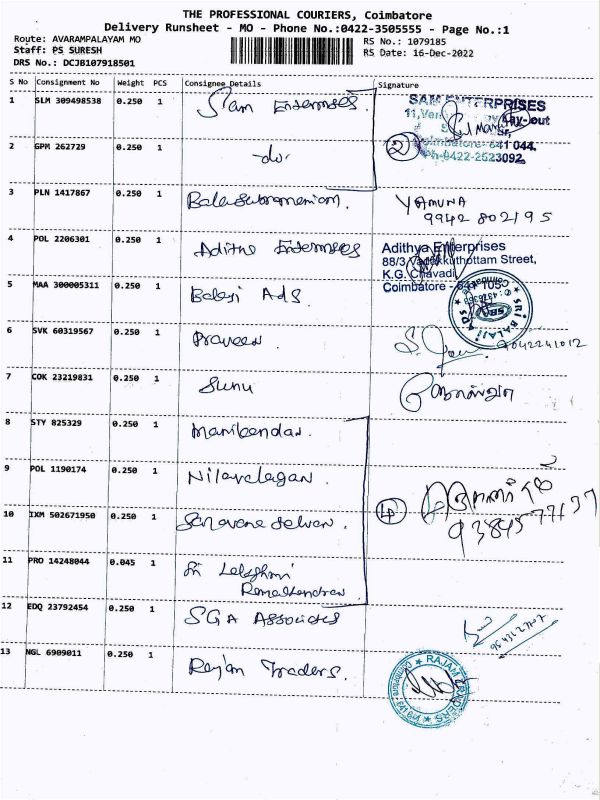 THE PROFESSIONAL COURIERS, Coimbatore
Delivery Runsheet - MO - Phone No.:0422-3505555 - Page No.:1
Route: AVARAMPALAYAM MO
RS No.: 1079185
Staff: PS SURESH
RS Date: 16-Dec-2022
DRS No.: DCJB107918501
S No Consignment No Weight PCS Consignee Details Signature
1 SLM 309498538 0.250 1 Siam Enterprises. SAM ENTERPRISES
2 GPM 262729 0.250 1 -do- 2 Coimbatore- 641 044.
Ph-0422-2523092.
3 PLN 1417867 0.250 1 Balasubramaniam. YAMUNA
9942 802195
4 POL 2206301 0.250 1 Adithya Enterprises Adithya Enterprises
88/3, Vadakkuthottam Street,
K.G. Chavadi
Coimbatore - 641 105
5 MAA 300005311 0.250 1 Balaji Ads. SRI BALAJI ADS
6 SVK 60319567 0.250 1 Praveen. 9042241012
7 COK 23219831 0.250 1 Sunu
8 STY 825329 0.250 1 Manikandan.
9 POL 1190174 0.250 1 Nilavalagan. 4
10 IXM 502671950 0.250 1 Saravana Selvan.
11 PRO 14248044 0.045 1 Sri Lakshmi
Ramachandran
12 EDQ 23792454 0.250 1 SGA Associates
13 NGL 6909011 0.250 1 Rajam Traders. RAJAM TRADERS